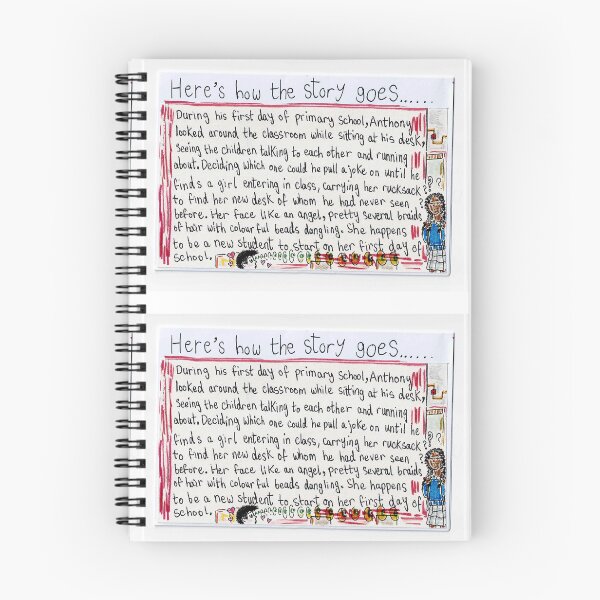 Here's how the story goes......
During his first day of primary school, Anthony
looked around the classroom while sitting at his desk,
seeing the children talking to each other and running
about. Deciding which one could he pull a joke on until he
finds a girl entering in class, carrying her rucksack
to find her new desk of whom he had never seen
before. Her face like an angel, pretty several braids
of hair with colourful beads dangling. She happens
to be a new student to start on her first day of
school.
Here's how the story goes......
During his first day of primary school, Anthony
looked around the classroom while sitting at his desk,
seeing the children talking to each other and running
about. Deciding which one could he pull a joke on until he
finds a girl entering in class, carrying her rucksack
to find her new desk of whom he had never seen
before. Her face like an angel, pretty several braids
of hair with colourful beads dangling. She happens
to be a new student to start on her first day of
school.